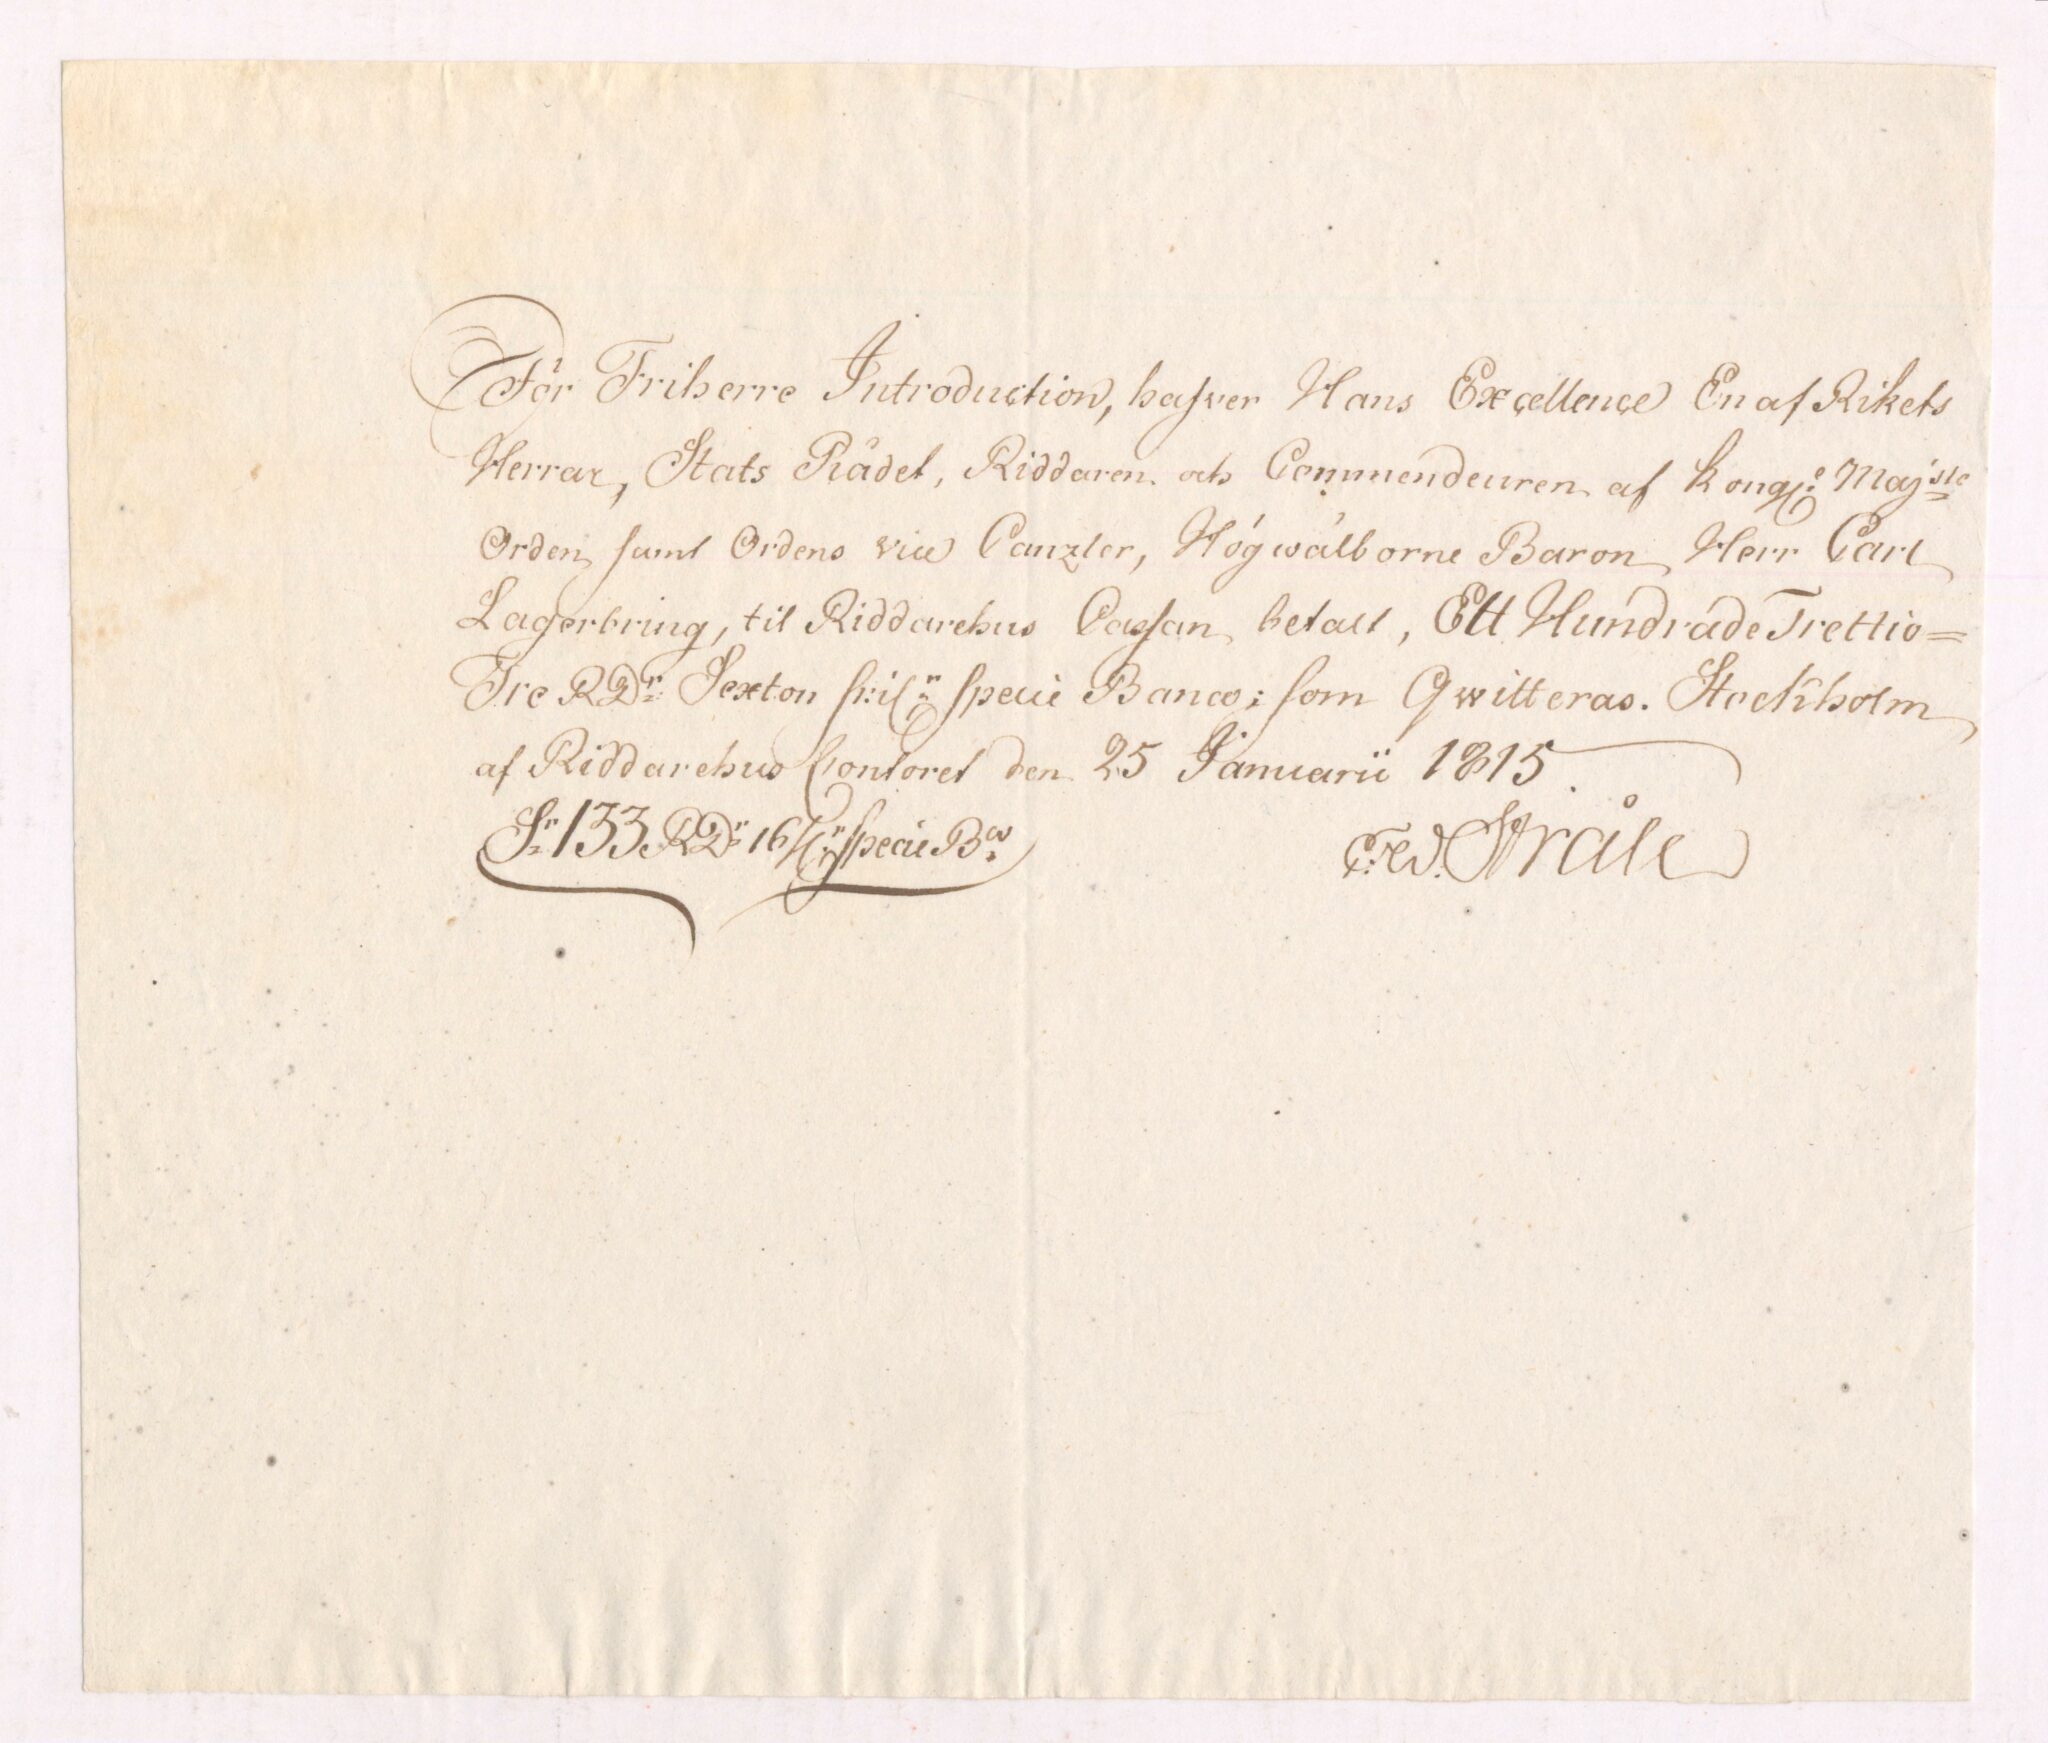 För Friherre Introduction, hafver Hans Excellence En af Rikets
Herrar, Stats Rådet, Riddaren och Commendeuren af Kongl: Maj:sts
Orden samt Ordens vice Canzler, Högwälborne Baron Herr Carl
Lagerbring, til Riddarehus Cassan betalt, Ett Hundrade Trettio=
Tre RDr Sexton skilr specie Banco; som Qwitteras. Stockholm
af Riddarehus Contoret den 25 Januarii 1815.
Sr 133 RDr 16 skr specie Bco
Stråle